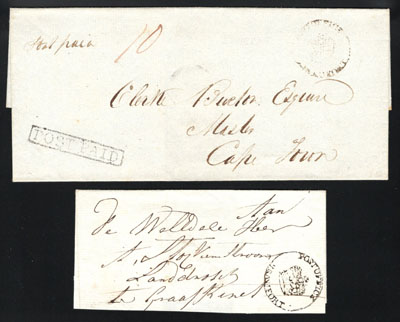 Post paid 10
POST OFFICE
Clerke Burton Esquire
Master
Cape Town
POST PAID
Aan
de Welledele Heer
A. Stockenstroom
Landdrost
te Graaff Reinet
POST OFFICE